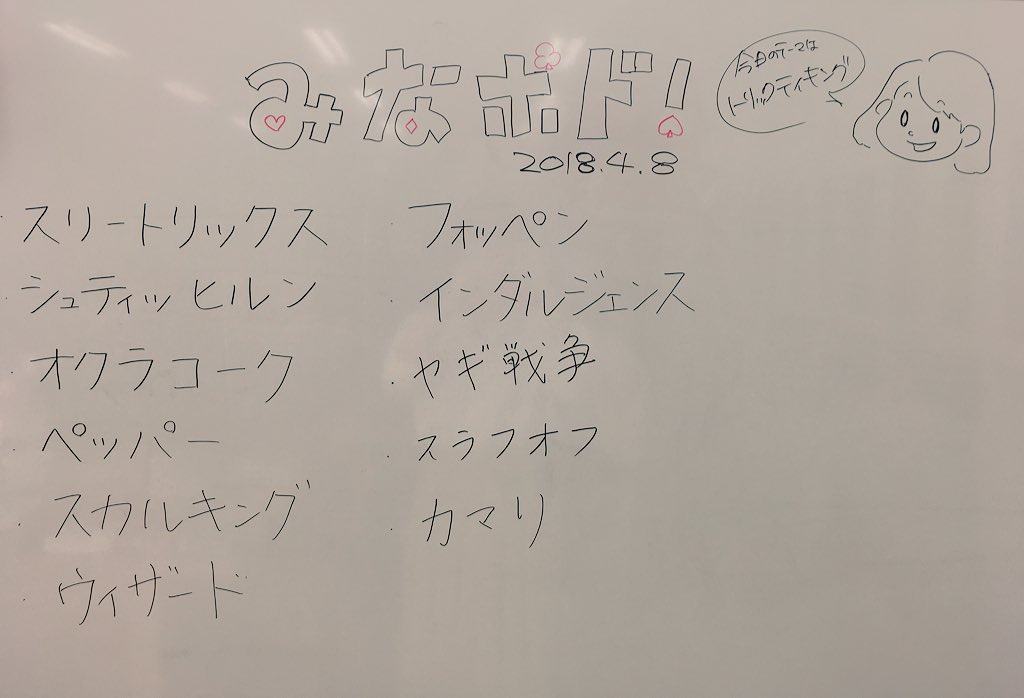 みなボド!
今日のテーマは
トリックテイキング
2018.4.8
・スリートリックス
・シュティッヒルン
・オクラコーク
・ペッパー
・スカルキング
・ウィザード
・フォッペン
・インダルジェンス
・ヤギ戦争
・スラフオフ
・カマリ